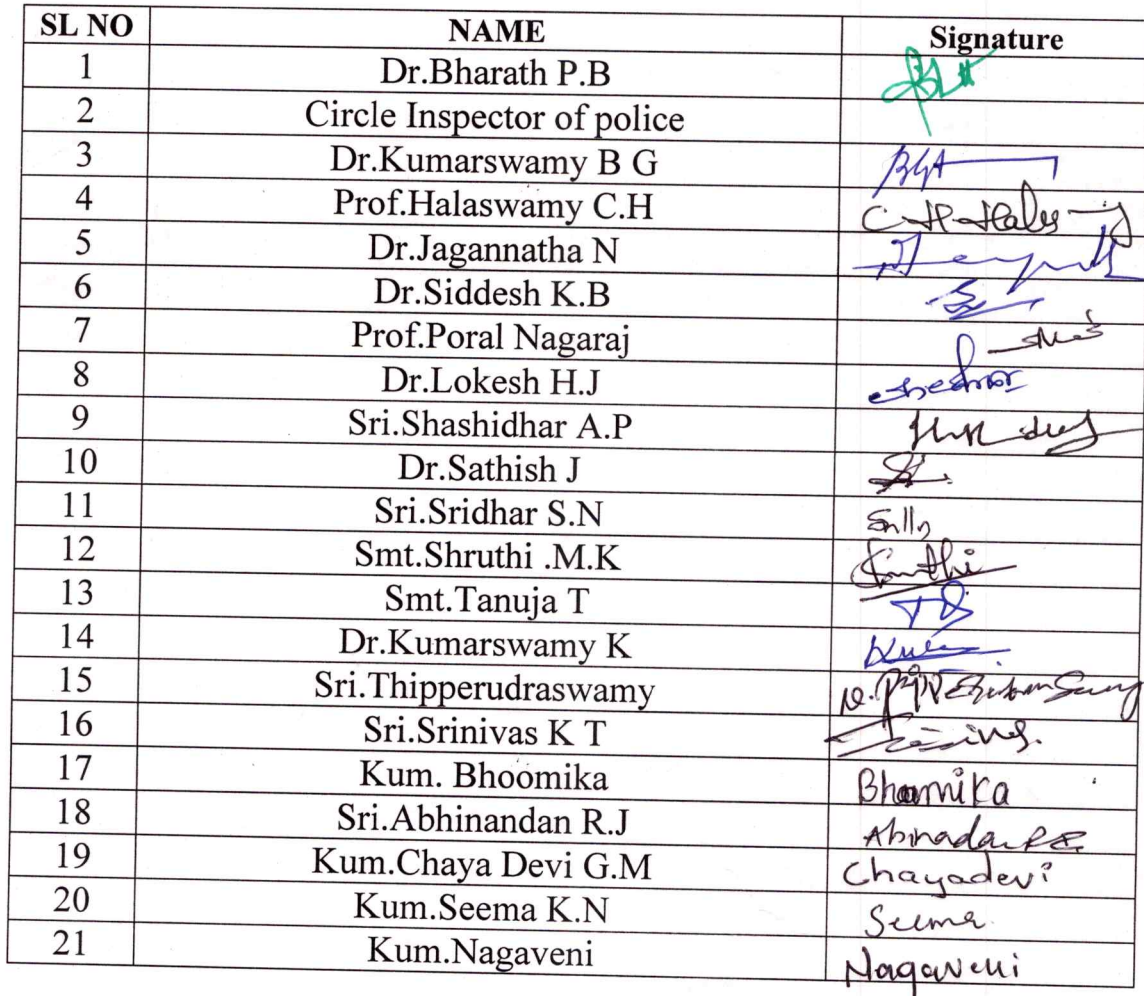 SL NO NAME Signature
1 Dr.Bharath P.B
2 Circle Inspector of police
3 Dr.Kumarswamy B G
4 Prof.Halaswamy C.H
5 Dr.Jagannatha N
6 Dr.Siddesh K.B
7 Prof.Poral Nagaraj
8 Dr.Lokesh H.J
9 Sri.Shashidhar A.P
10 Dr.Sathish J
11 Sri.Sridhar S.N
12 Smt.Shruthi .M.K
13 Smt.Tanuja T
14 Dr.Kumarswamy K
15 Sri.Thipperudraswamy
16 Sri.Srinivas K T
17 Kum. Bhoomika Bhoomika
18 Sri.Abhinandan R.J
19 Kum.Chaya Devi G.M Chayadevi
20 Kum.Seema K.N Seema
21 Kum.Nagaveni Nagaveni